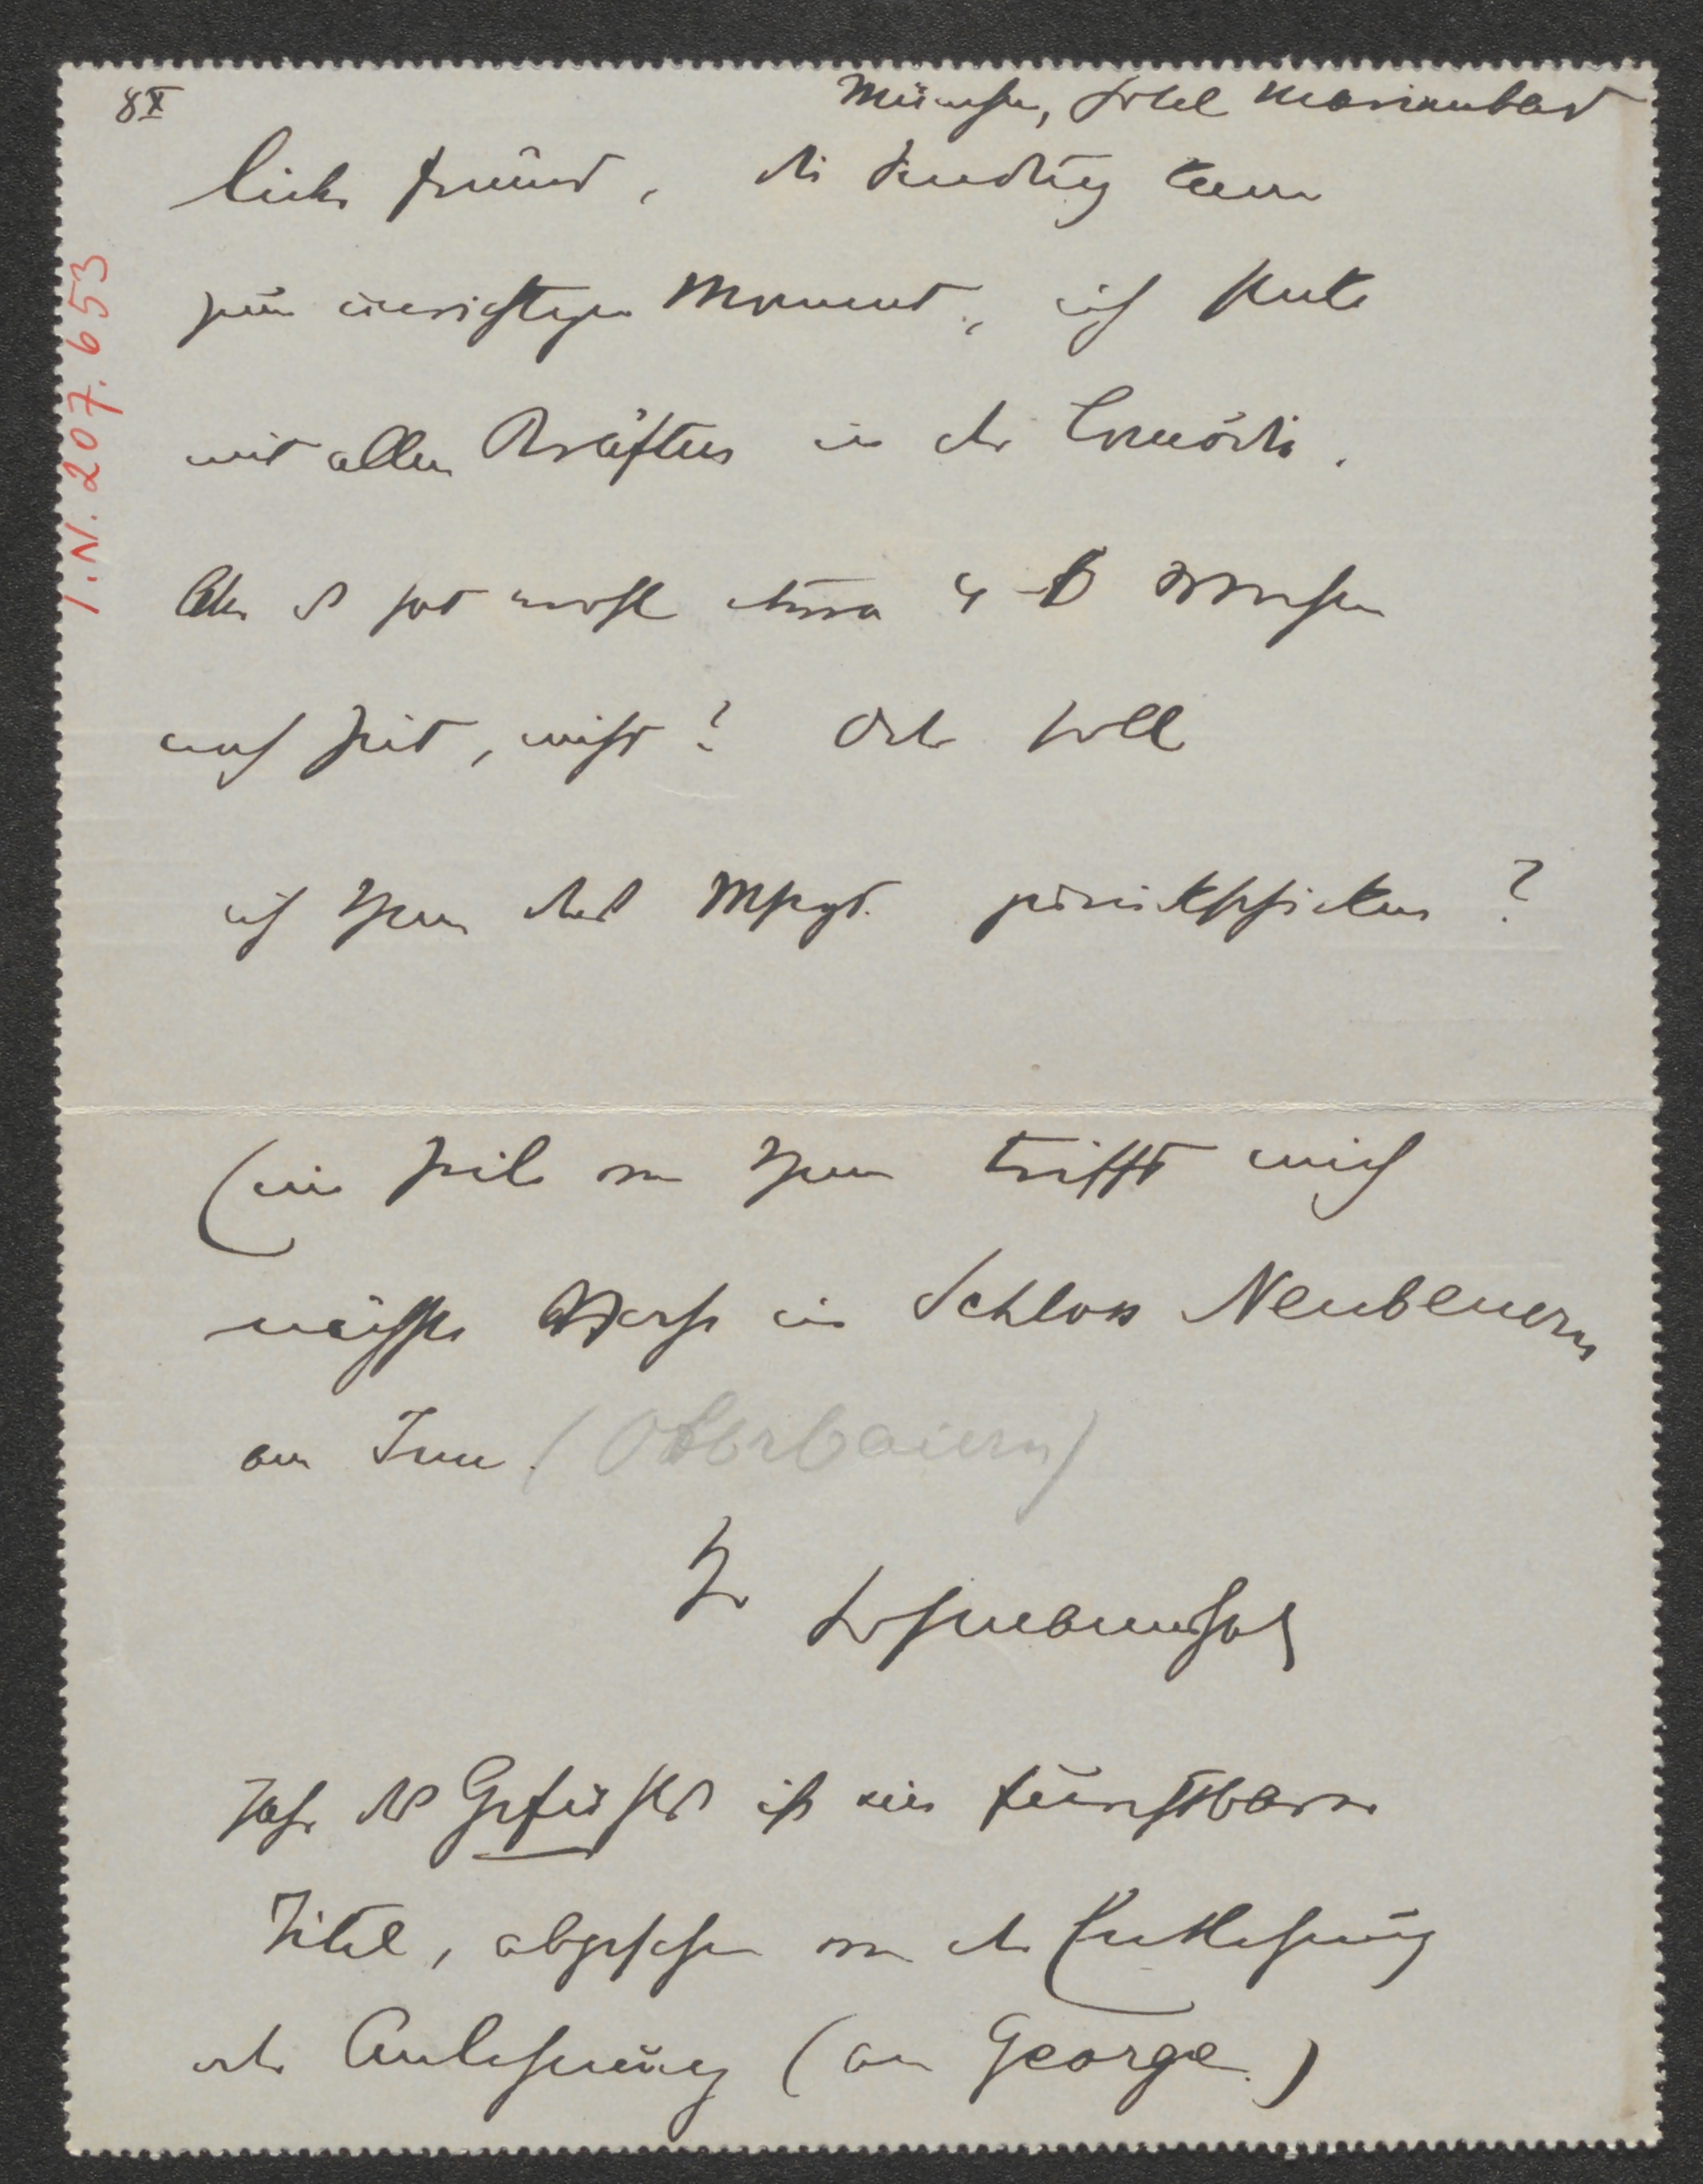 8 X
München, Hotel Marienbad
lieber Freund, die Sendung kam
zum unrichtigen Moment, ich stecke
mit allen Kräften in der Comödie.
Aber es hat wohl etwa 4 - 6 Wochen
auch Zeit, nicht? Oder soll
ich Ihnen das Mscpt. zurückschicken?
Eine Zeile von Ihnen trifft mich
nächste Woche in Schloss Neubeuern
am Inn. (Oberbaiern)
Ihr Hofmannsthal
Jahr des Gefühls ist ein furchtbarer
Titel, abgesehen von der Entlehnung
oder Anlehnung (an George.)
I.N. 207.653